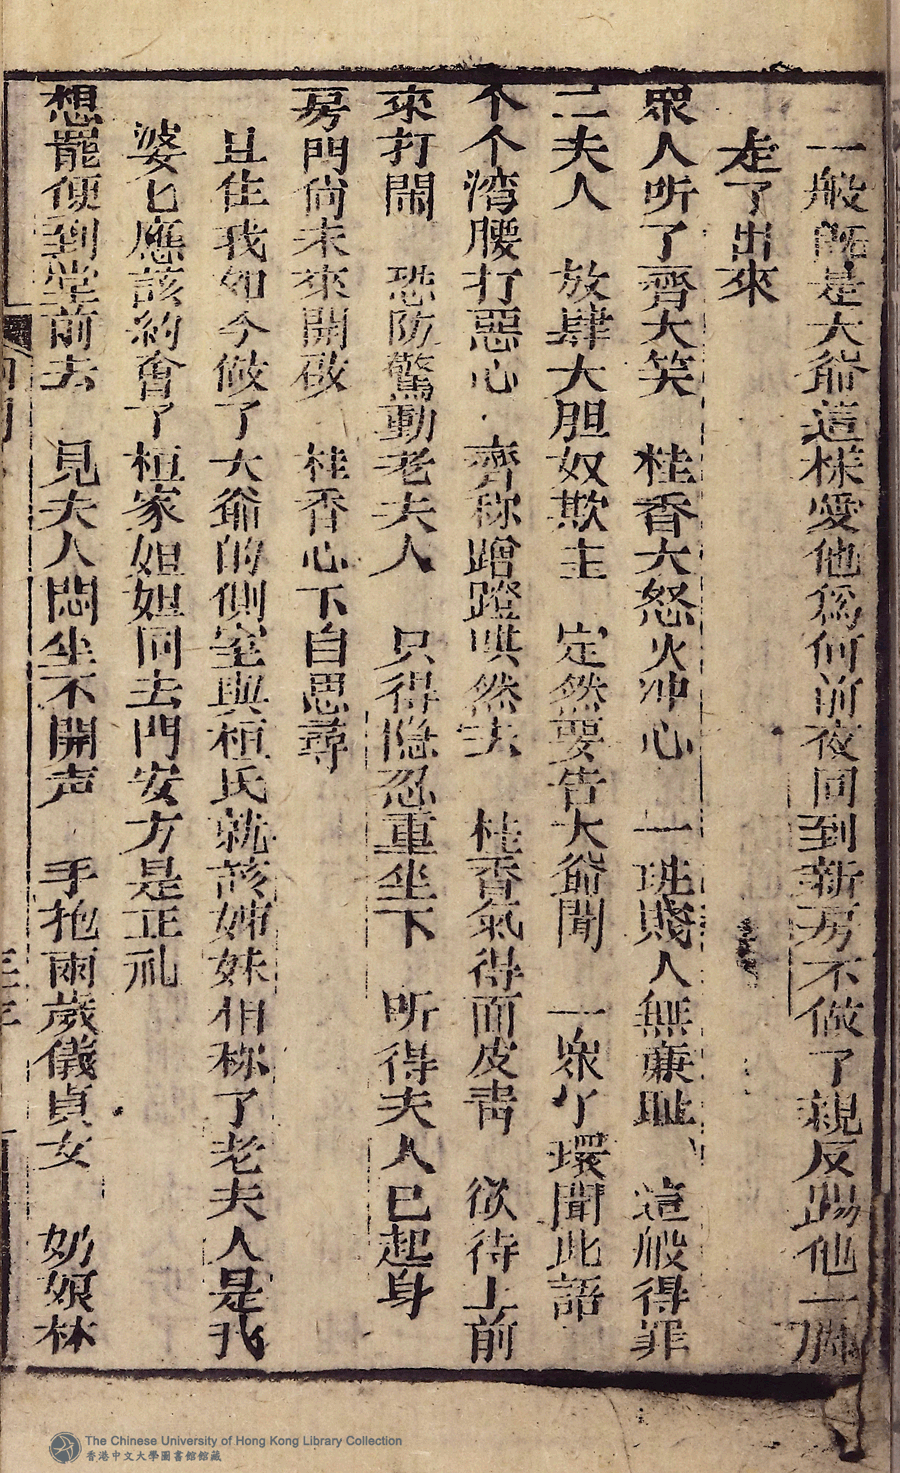 一般既是大爺這樣愛他為何前夜回到新房不做了親反踢他一脚
走了出來
眾人听了齊大笑　桂香大怒火冲心　一班賤人無廉耻　這般得罪
二夫人　放肆大胆奴欺主　定然要告大爺聞　一眾丫環聞此語
个个湾腰打惡心　齊称蹭蹬哄然去　桂香氣得面皮青　欲待上前
來打鬧　恐防驚動老夫人　只得隐忍重坐下　听得夫人已起身
房門尚未來開破　桂香心下自思尋
且住我如今做了大爺的側室與桓氏就該姊妹相称了老夫人是我
婆匕應該約會了桓家姐姐同去問安方是正礼
想罷便到堂前去　見夫人悶坐不開声　手抱兩歲儀貞女　奶娘林
The Chinese University of Hong Kong Library Collection
香港中文大學圖書館館藏